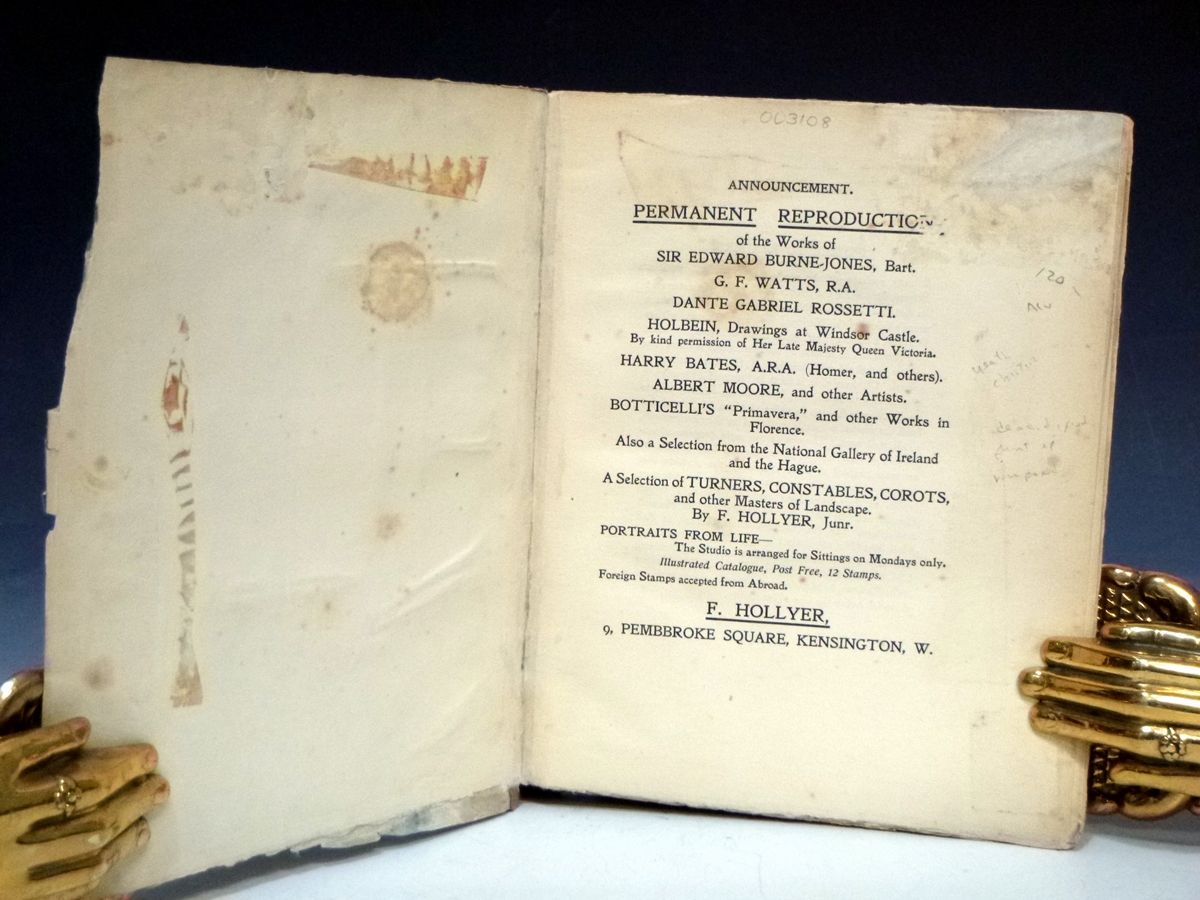 003108
ANNOUNCEMENT.
PERMANENT REPRODUCTION
of the Works of
SIR EDWARD BURNE-JONES, Bart.
G. F. WATTS, R.A.
DANTE GABRIEL ROSSETTI.
HOLBEIN, Drawings at Windsor Castle.
By kind permission of Her Late Majesty Queen Victoria.
HARRY BATES, A.R.A. (Homer, and others).
ALBERT MOORE, and other Artists.
BOTTICELLI'S "Primavera," and other Works in
Florence.
Also a Selection from the National Gallery of Ireland
and the Hague.
A Selection of TURNERS, CONSTABLES, COROTS,
and other Masters of Landscape.
By F. HOLLYER, Junr.
PORTRAITS FROM LIFE—
The Studio is arranged for Sittings on Mondays only.
Illustrated Catalogue, Post Free, 12 Stamps.
Foreign Stamps accepted from Abroad.
F. HOLLYER,
9, PEMBBROKE SQUARE, KENSINGTON, W.
120